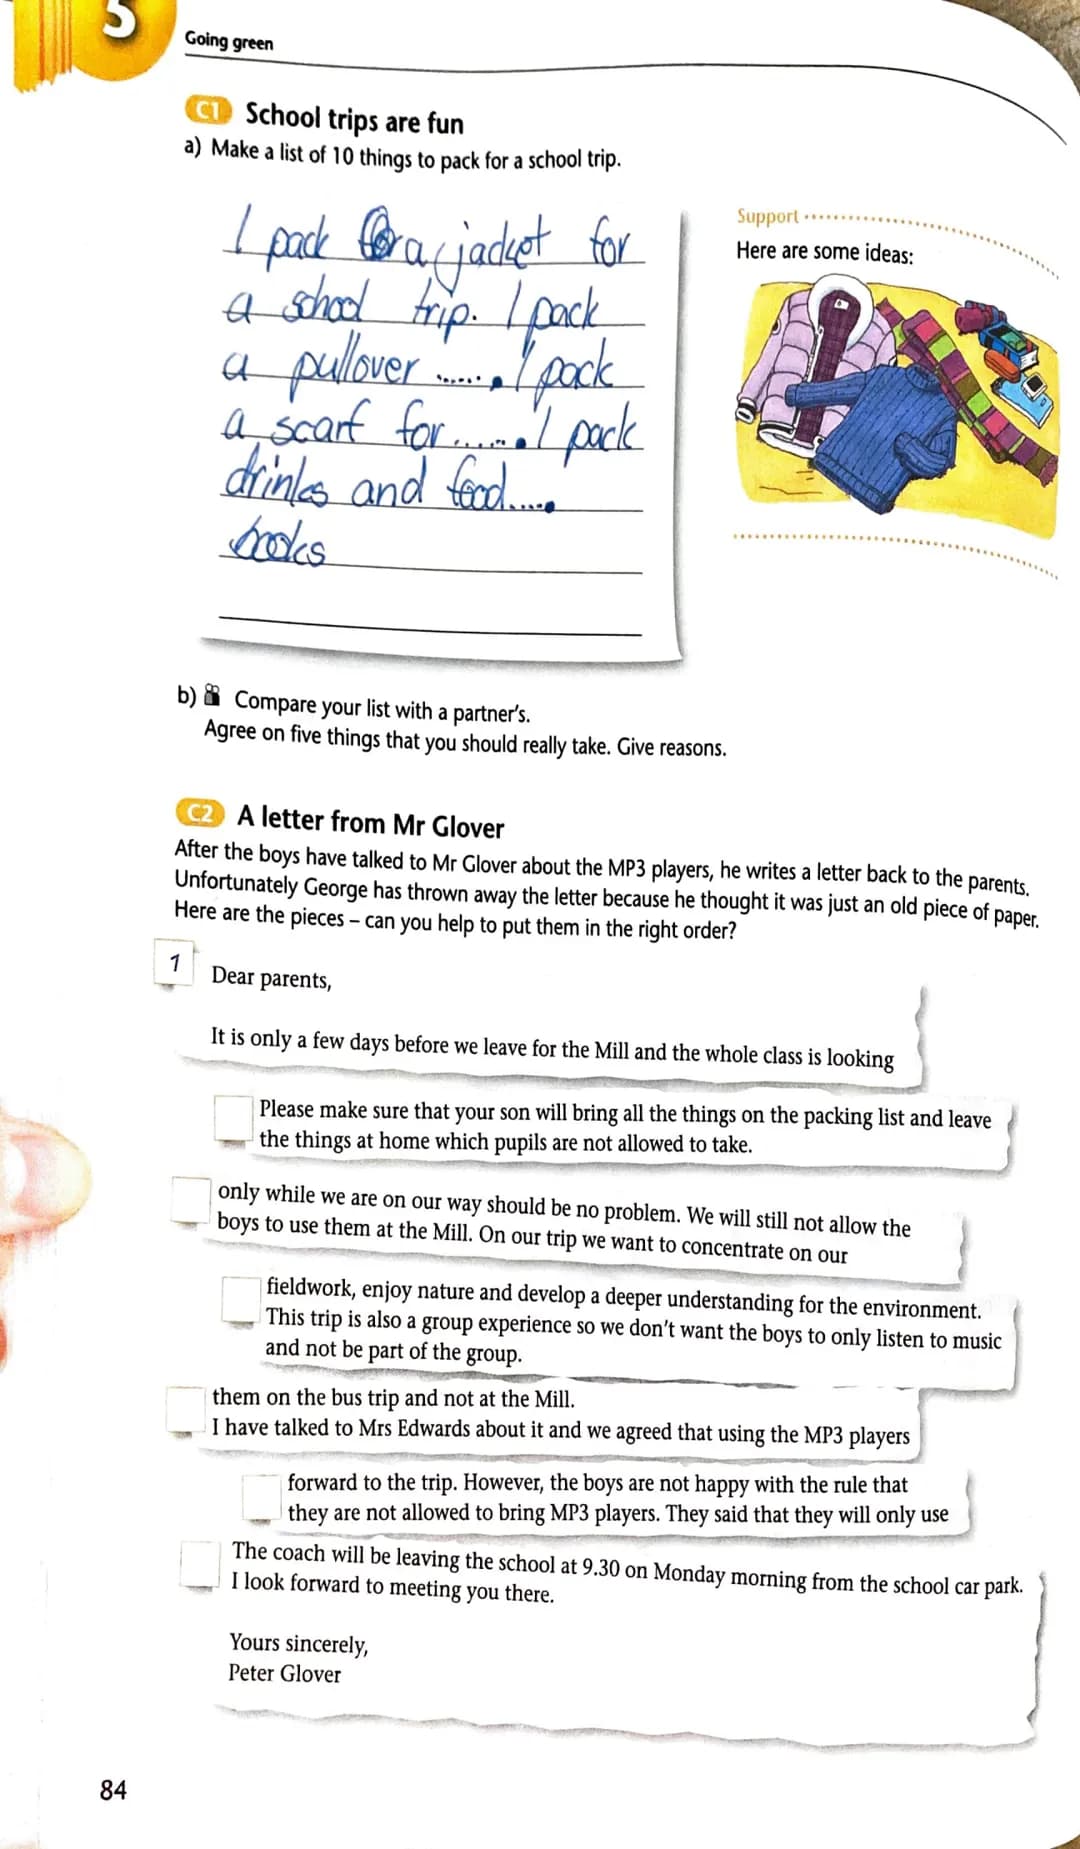 5
Going green
C1 School trips are fun
a) Make a list of 10 things to pack for a school trip.
I pack a jacket for
a school trip. I pack
a pullover ....... I pack
a scarf for ....... I pack
drinks and food......
books
Support
Here are some ideas:
b) Compare your list with a partner's.
Agree on five things that you should really take. Give reasons.
C2 A letter from Mr Glover
After the boys have talked to Mr Glover about the MP3 players, he writes a letter back to the parents.
Unfortunately George has thrown away the letter because he thought it was just an old piece of paper.
Here are the pieces – can you help to put them in the right order?
1
Dear parents,
It is only a few days before we leave for the Mill and the whole class is looking
Please make sure that your son will bring all the things on the packing list and leave
the things at home which pupils are not allowed to take.
only while we are on our way should be no problem. We will still not allow the
boys to use them at the Mill. On our trip we want to concentrate on our
fieldwork, enjoy nature and develop a deeper understanding for the environment.
This trip is also a group experience so we don't want the boys to only listen to music
and not be part of the group.
them on the bus trip and not at the Mill.
I have talked to Mrs Edwards about it and we agreed that using the MP3 players
forward to the trip. However, the boys are not happy with the rule that
they are not allowed to bring MP3 players. They said that they will only use
The coach will be leaving the school at 9.30 on Monday morning from the school car park.
I look forward to meeting you there.
Yours sincerely,
Peter Glover
84